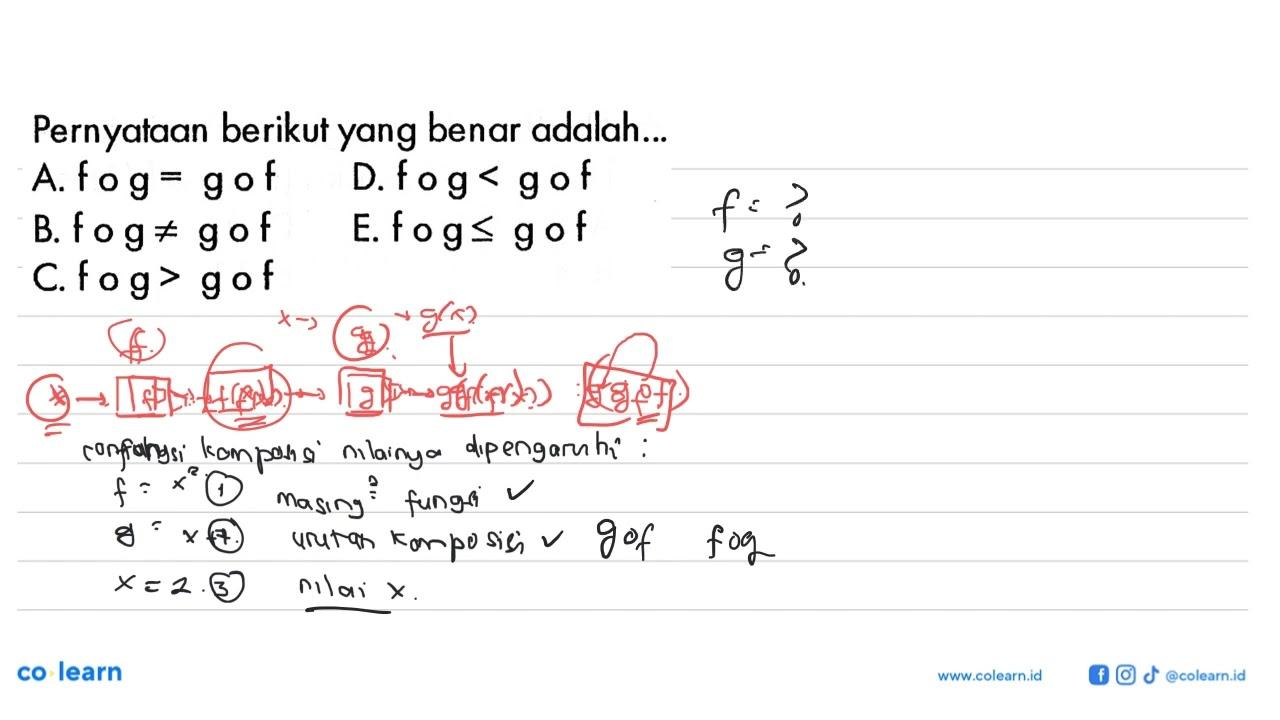 Pernyataan berikut yang benar adalah...
A. f o g = g o f
D. f o g < g o f
B. f o g ≠ g o f
E. f o g ≤ g o f
C. f o g > g o f
f = ?
g = ?
f
x → g → g(x)
x → f → f(x) → g →
kompo
nilainya dipengaruhi :
f = x² ① masing² fungsi ✓
g = x
urutan komposisi ✓ gof fog
x = 2. ③ nilai x.
co learn
www.colearn.id
@colearn.id